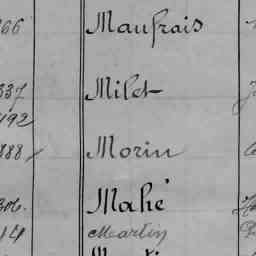 66 Maufrais
337 Milet
492
888 Morin
306. Mahé
14 Martin